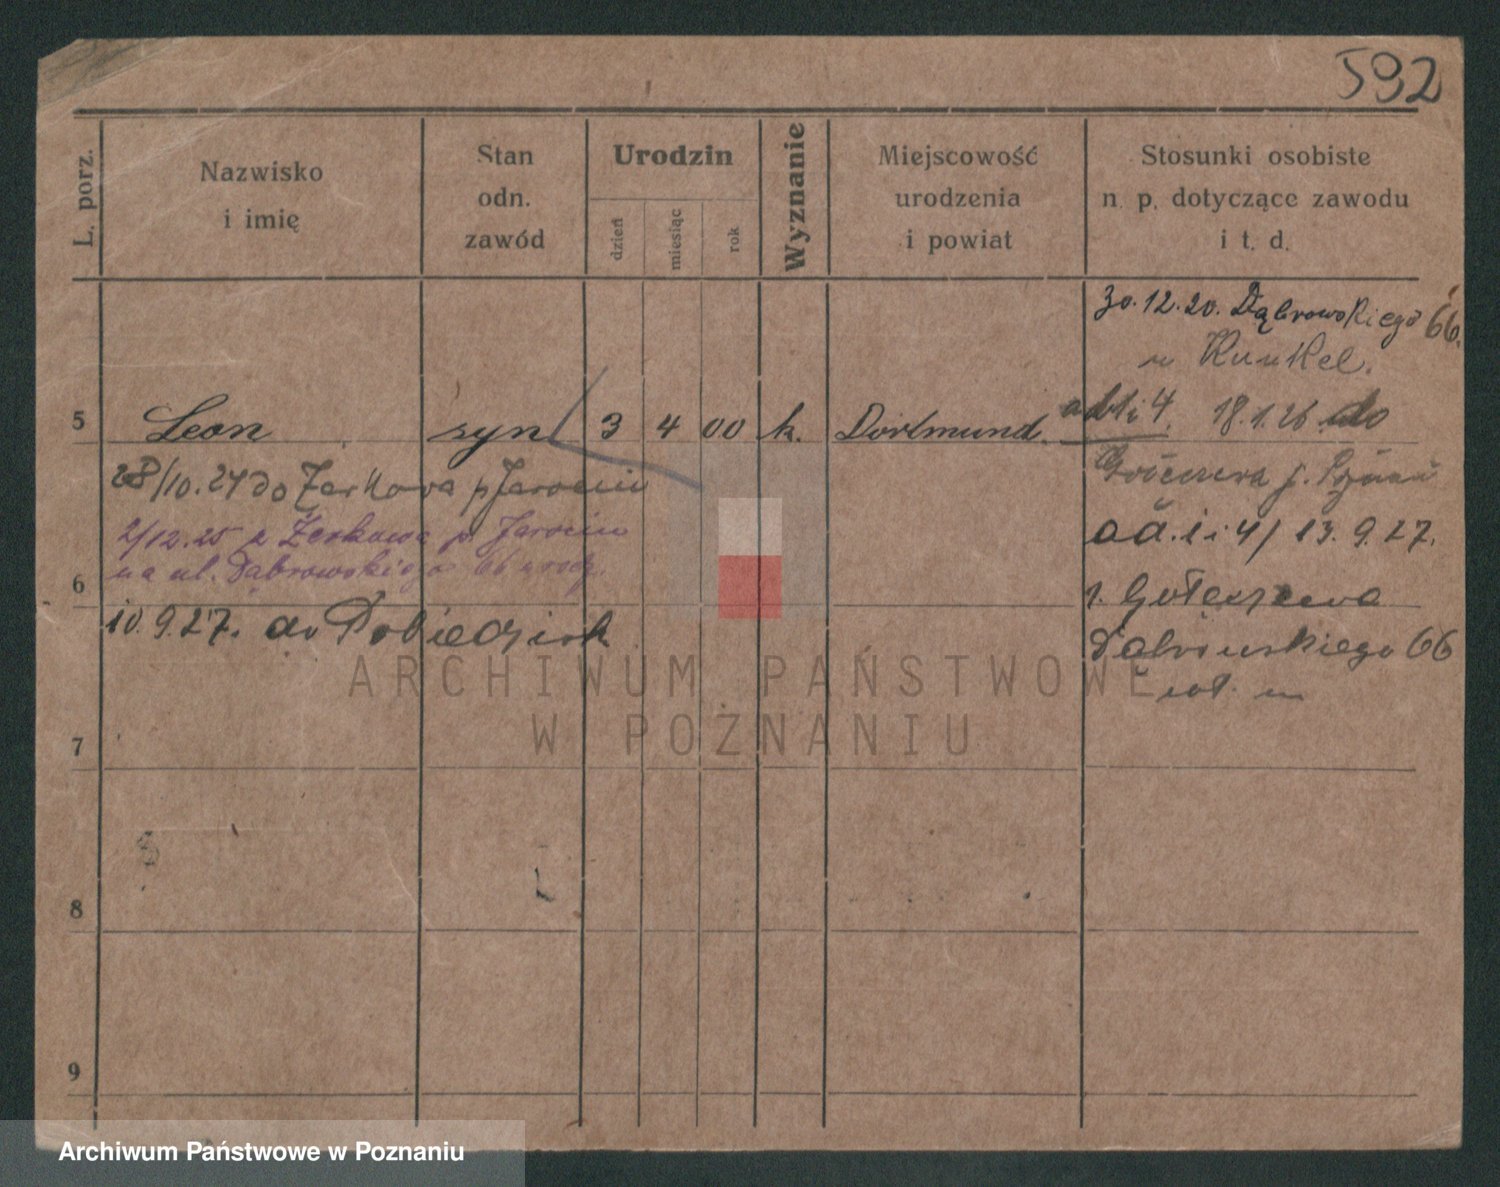 592
L. porz.
Nazwisko
i imię
Stan
odn.
zawód
Urodzin
dzień
miesiąc
rok
Wyznanie
Miejscowość
urodzenia
i powiat
Stosunki osobiste
n. p. dotyczące zawodu
i t. d.
30.12.20. Dąbrowskiego 66.
u Kunkel.
5 Leon syn 3 4 00 k. Dortmund.
18.1.26 do
28/10.24 do Zerkowa p Jarocin
2/12.25 z Żerkowa p. Jarocin
na ul. Dąbrowskiego 66 urodz.
ad. 1 i 4/ 13. 9. 27.
6
z. Gołęczewa
10.9.27. do Pobiedzisk
Dąbrowskiego 66
7
8
9
ARCHIWUM PAŃSTWOWE
W POZNANIU
Archiwum Państwowe w Poznaniu